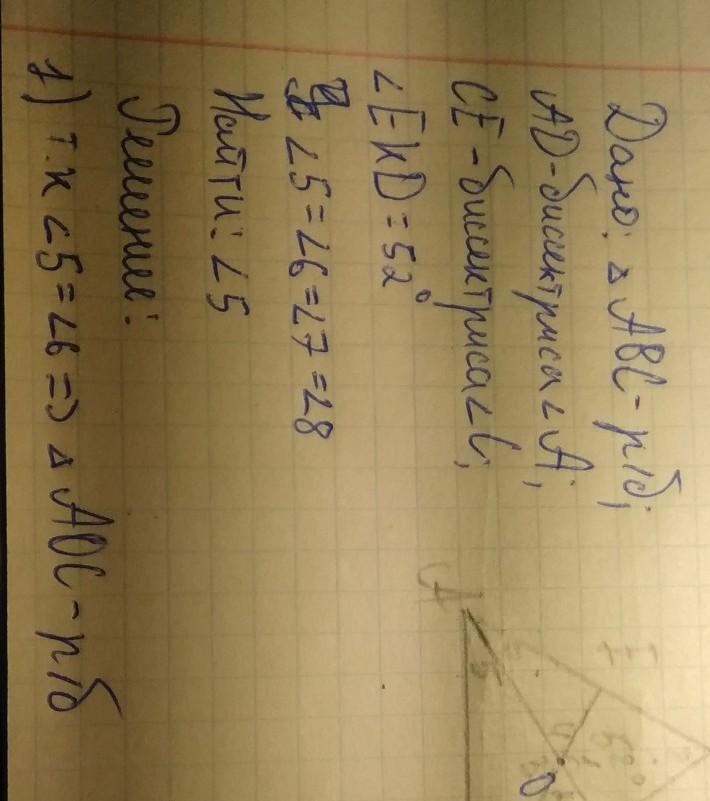 Дано: △ ABC - р/б;
AD - биссектриса ∠ A;
CE - биссектриса ∠ C;
∠EKD = 52°
∠5 = ∠6 = ∠7 = ∠8
Найти: ∠5
Решение:
1) т.к ∠5 = ∠6 => △ AOC - р/б
A
52°
O